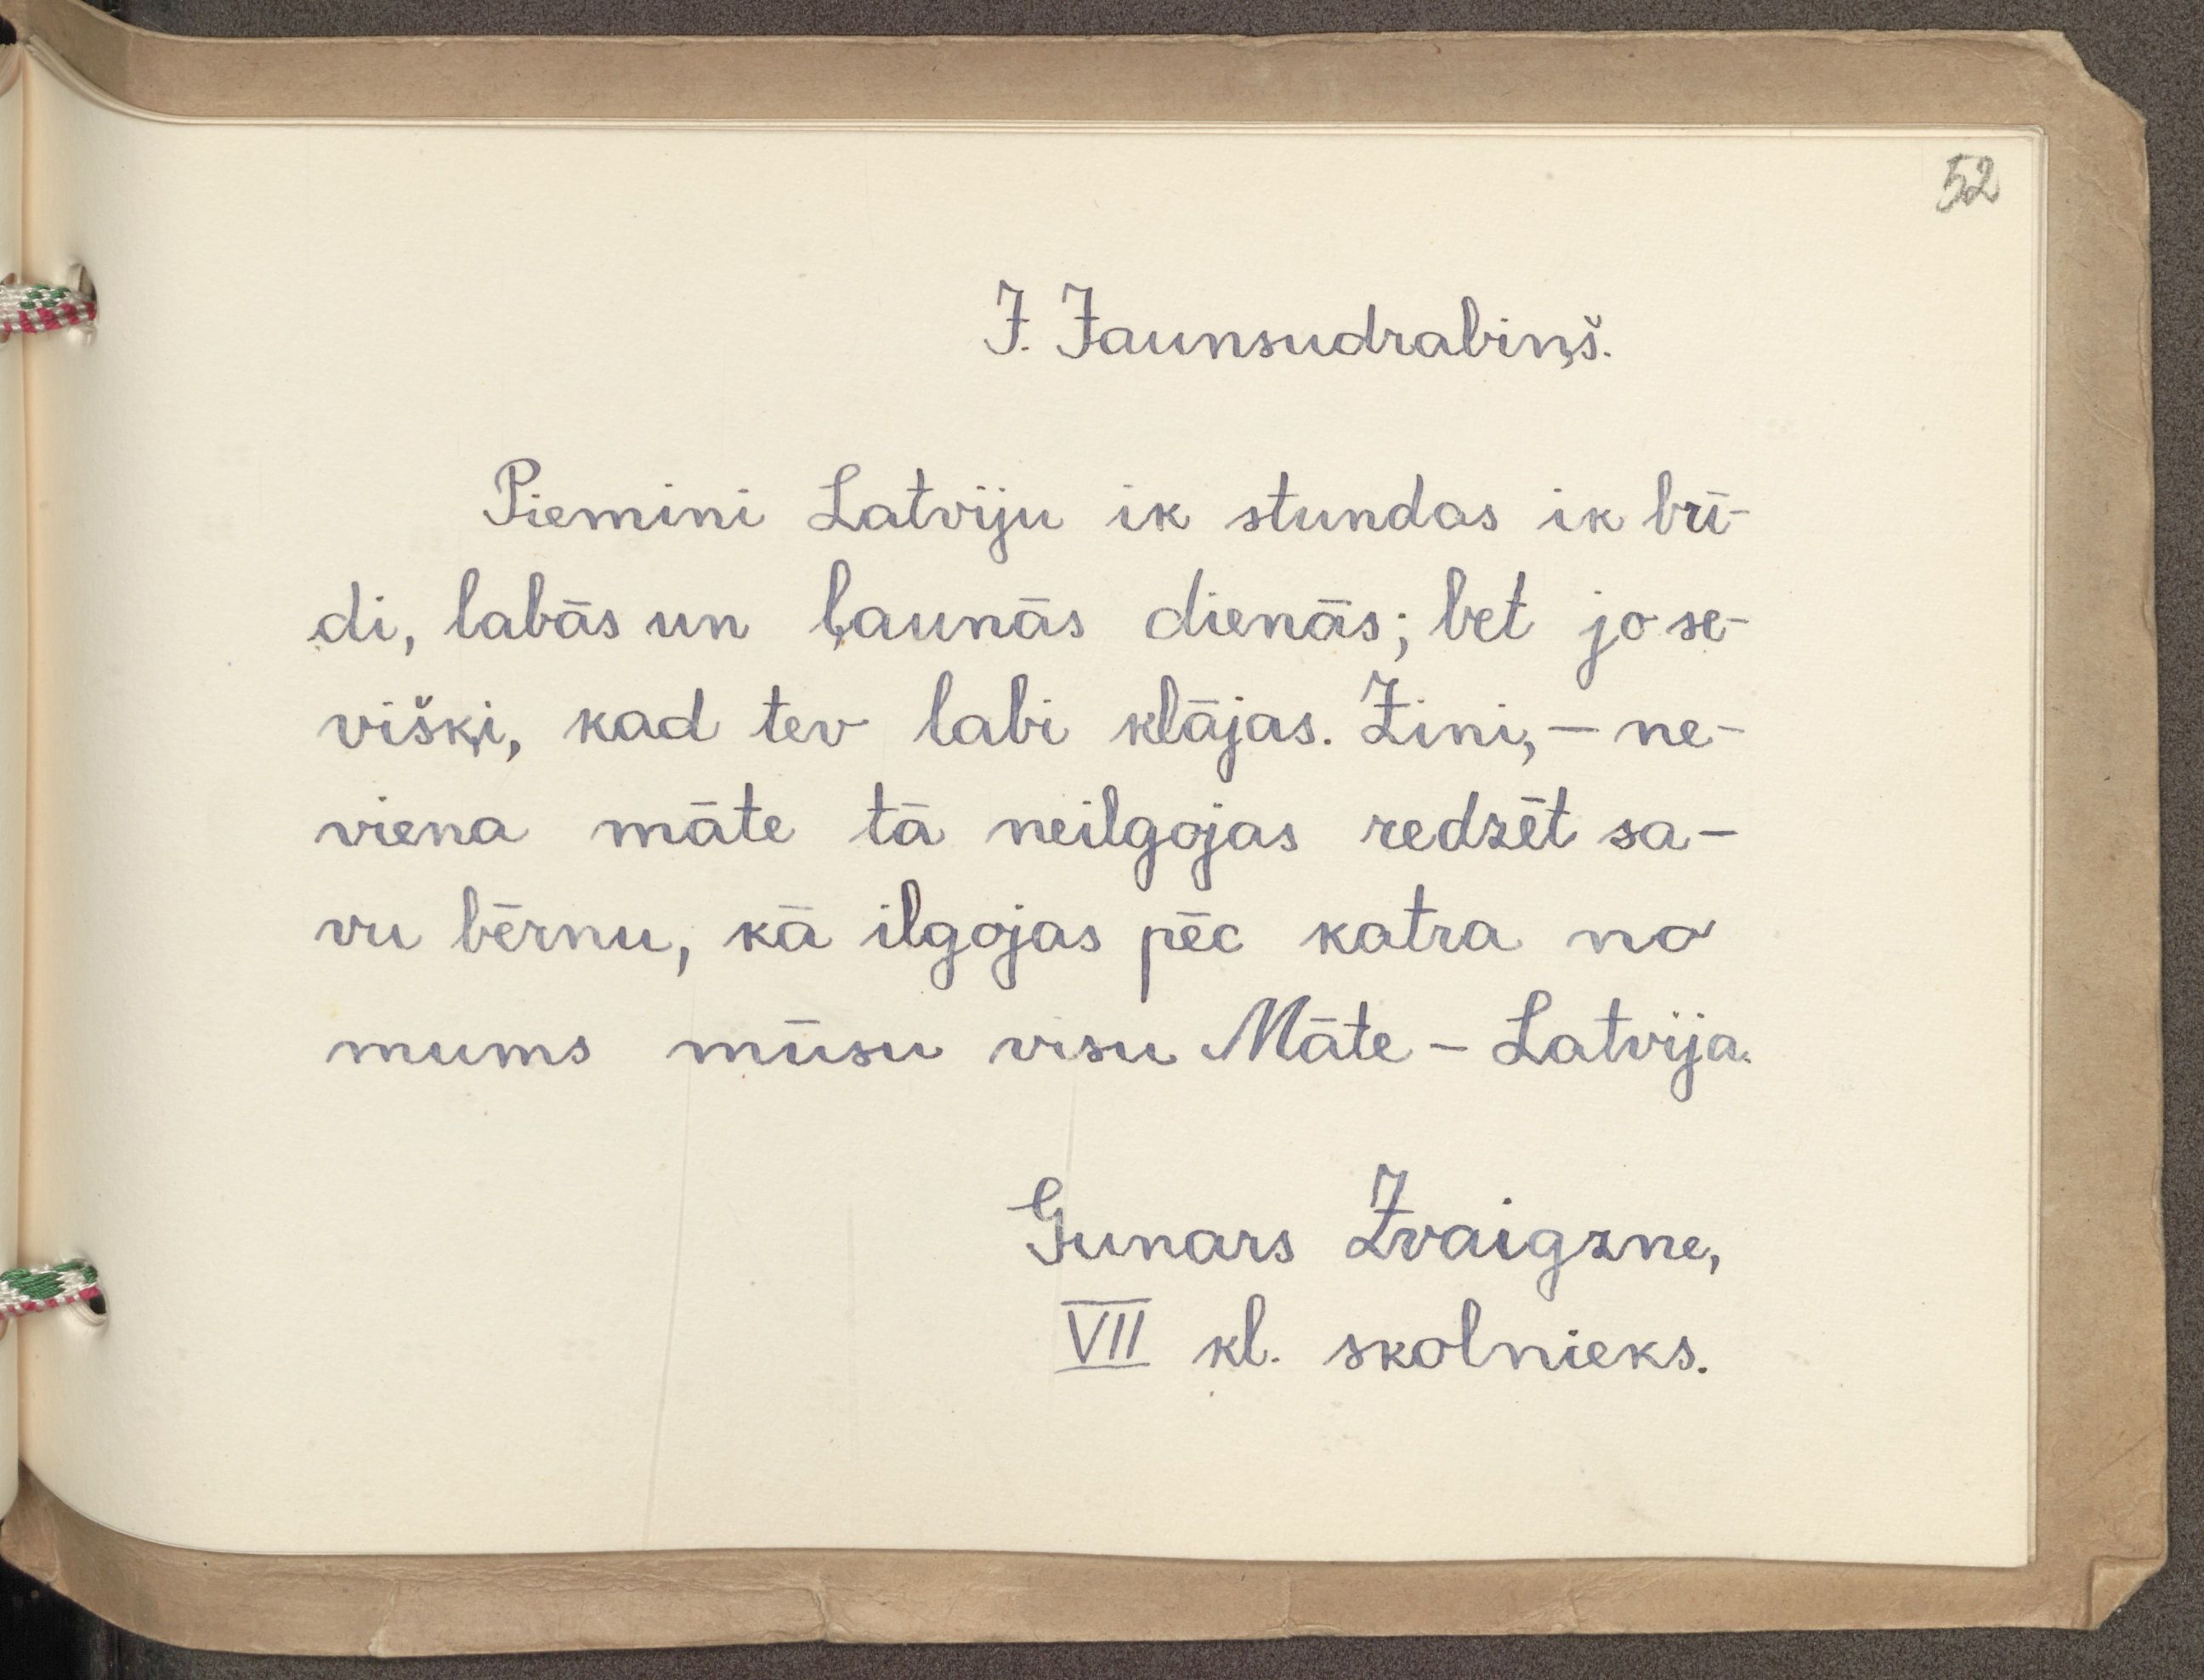 52
J. Jaunsudrabiņš.
Piemini Latviju ik stundas ik brī-
di, labās un ļaunās dienās; bet jo se-
višķi, kad tev labi klājas. Zini, – ne-
viena māte tā neilgojas redzēt sa-
vu bērnu, kā ilgojas pēc katra no
mums mūsu visu Māte – Latvija.
Gunars Zvaigzne,
VII kl. skolnieks.